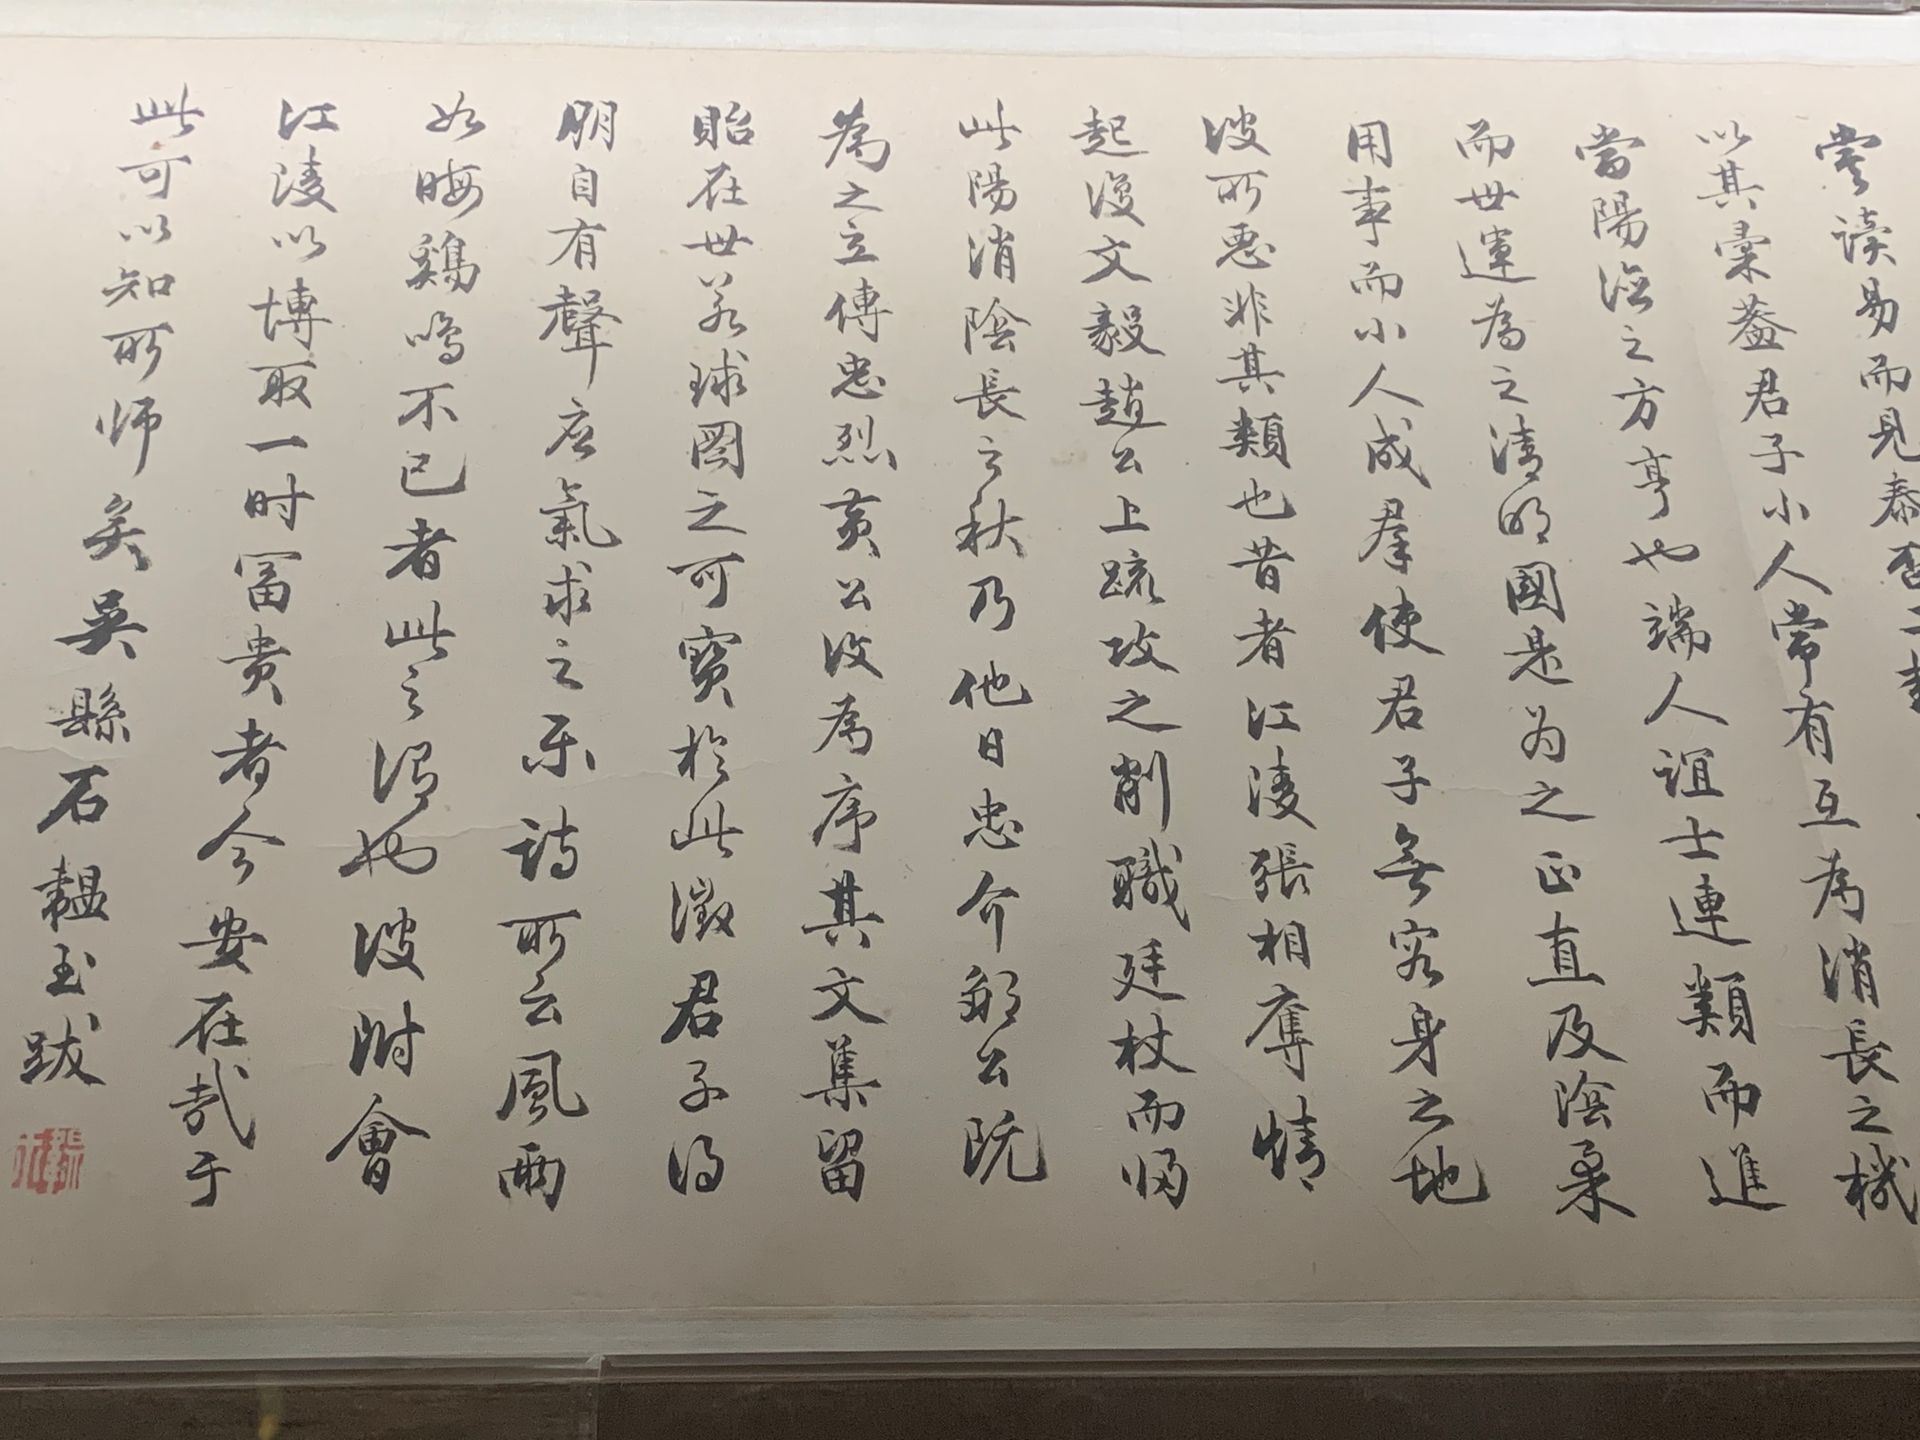 嘗读易而見泰否二
以其彙蓋君子小人常有互為消長之機
當陽德之方亨也端人誼士連類而進
而世運為之清明國是为之正直及陰柔
用事而小人成羣使君子無容身之地
彼所惡非其類也昔者江陵張相奪情
起復文毅趙公上疏攻之削職廷杖而歸
此陽消陰長之秋乃他日忠介鄒公既
為之立傳忠烈黃公没為序其文集留
貽在世若球圖之可寶於此徵君子得
朋自有聲应氣求之乐詩所云風雨
如晦鷄鳴不已者此之谓也彼附會
江陵以博取一时富贵者今安在哉于
此可以知所师矣吳縣石韞玉跋